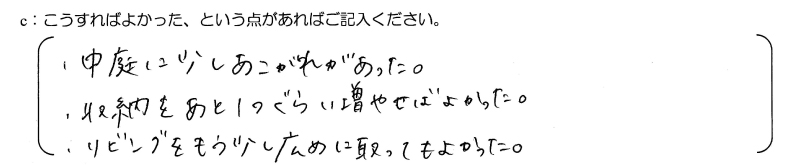 c：こうすればよかった、という点があればご記入ください。
・中庭に少しあこがれがあった。
・収納をあと1つぐらい増やせばよかった。
・リビングをもう少し広めに取ってもよかった。